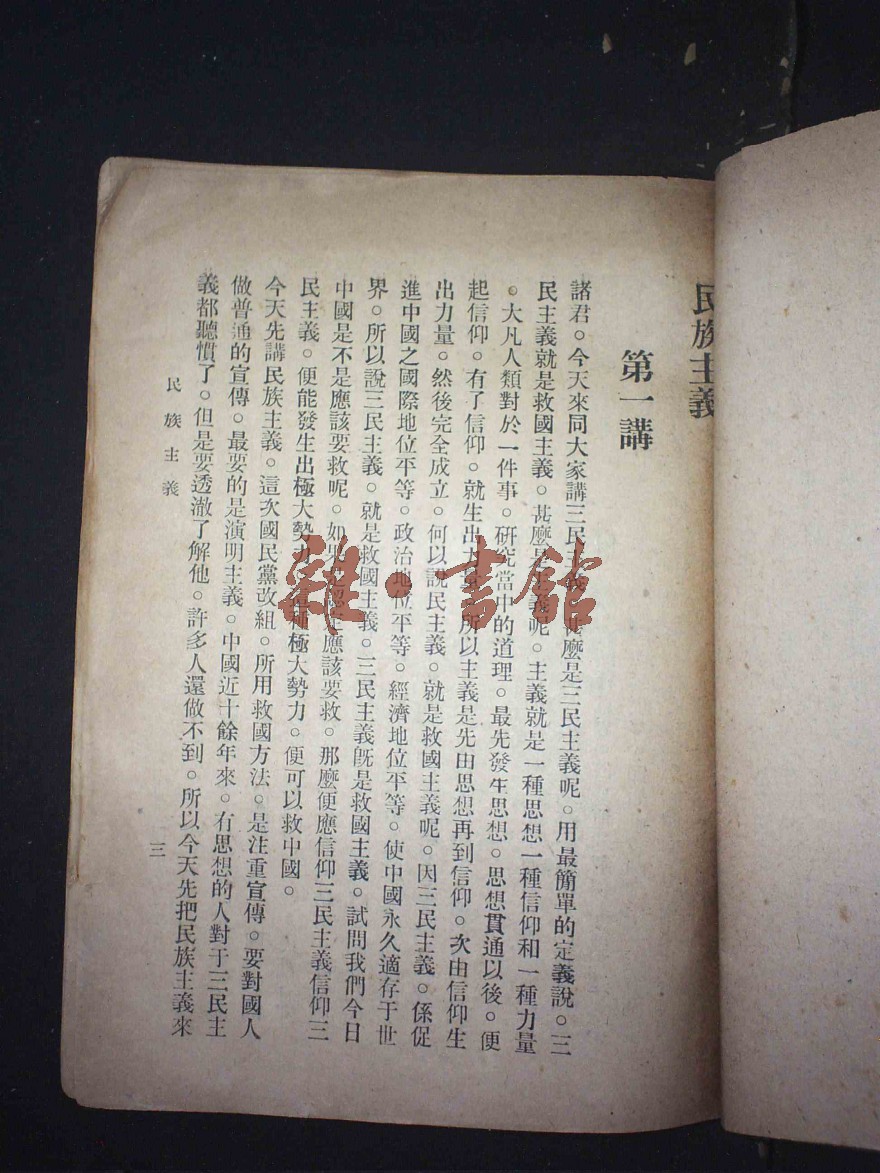 民族主義
第一講
諸君。今天來同大家講三民主義。甚麼是三民主義呢。用最簡單的定義說。三
民主義就是救國主義。甚麼是主義呢。主義就是一種思想一種信仰和一種力量
。大凡人類對於一件事。研究當中的道理。最先發生思想。思想貫通以後。便
起信仰。有了信仰。就生出力量。所以主義是先由思想再到信仰。次由信仰生
出力量。然後完全成立。何以說民主義。就是救國主義呢。因三民主義。係促
進中國之國際地位平等。政治地位平等。經濟地位平等。使中國永久適存于世
界。所以說三民主義。就是救國主義。三民主義旣是救國主義。試問我們今日
中國是不是應該要救呢。如果是認定應該要救。那麼便應信仰三民主義信仰三
民主義。便能發生出極大勢力。這種極大勢力。便可以救中國。
今天先講民族主義。這次國民黨改組。所用救國方法。是注重宣傳。要對國人
做普通的宣傳。最要的是演明主義。中國近十餘年來。有思想的人對于三民主
義都聽慣了。但是要透澈了解他。許多人還做不到。所以今天先把民族主義來
民族主義
三
雜·書館